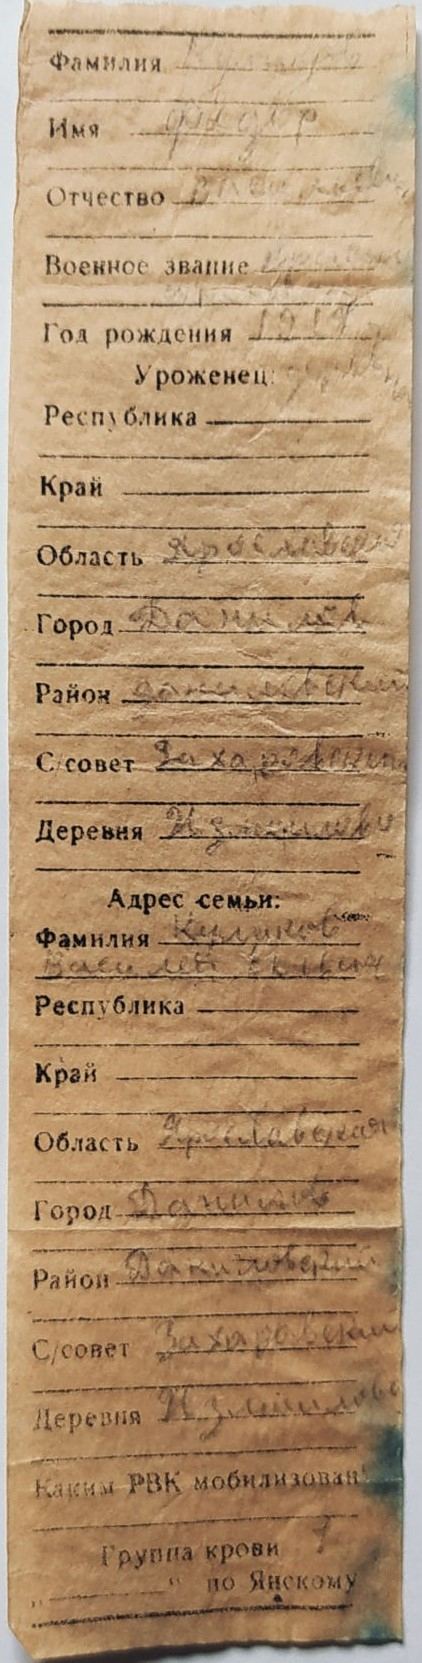 Фамилия
Имя Фёдор
Отчество
Военное звание
Год рождения
Уроженец:
Республика
Край
Область Ярославская
Город Данилов
Район Даниловский
С/совет Захаровский
Деревня Измайлово
Адрес семьи:
Фамилия Куликов
Василей
Республика
Край
Область Ярославская
Город Данилов
Район Даниловский
С/совет Захаровский
Деревня Измайлово
Каким РВК мобилизован
Группа крови
„ “ по Янскому